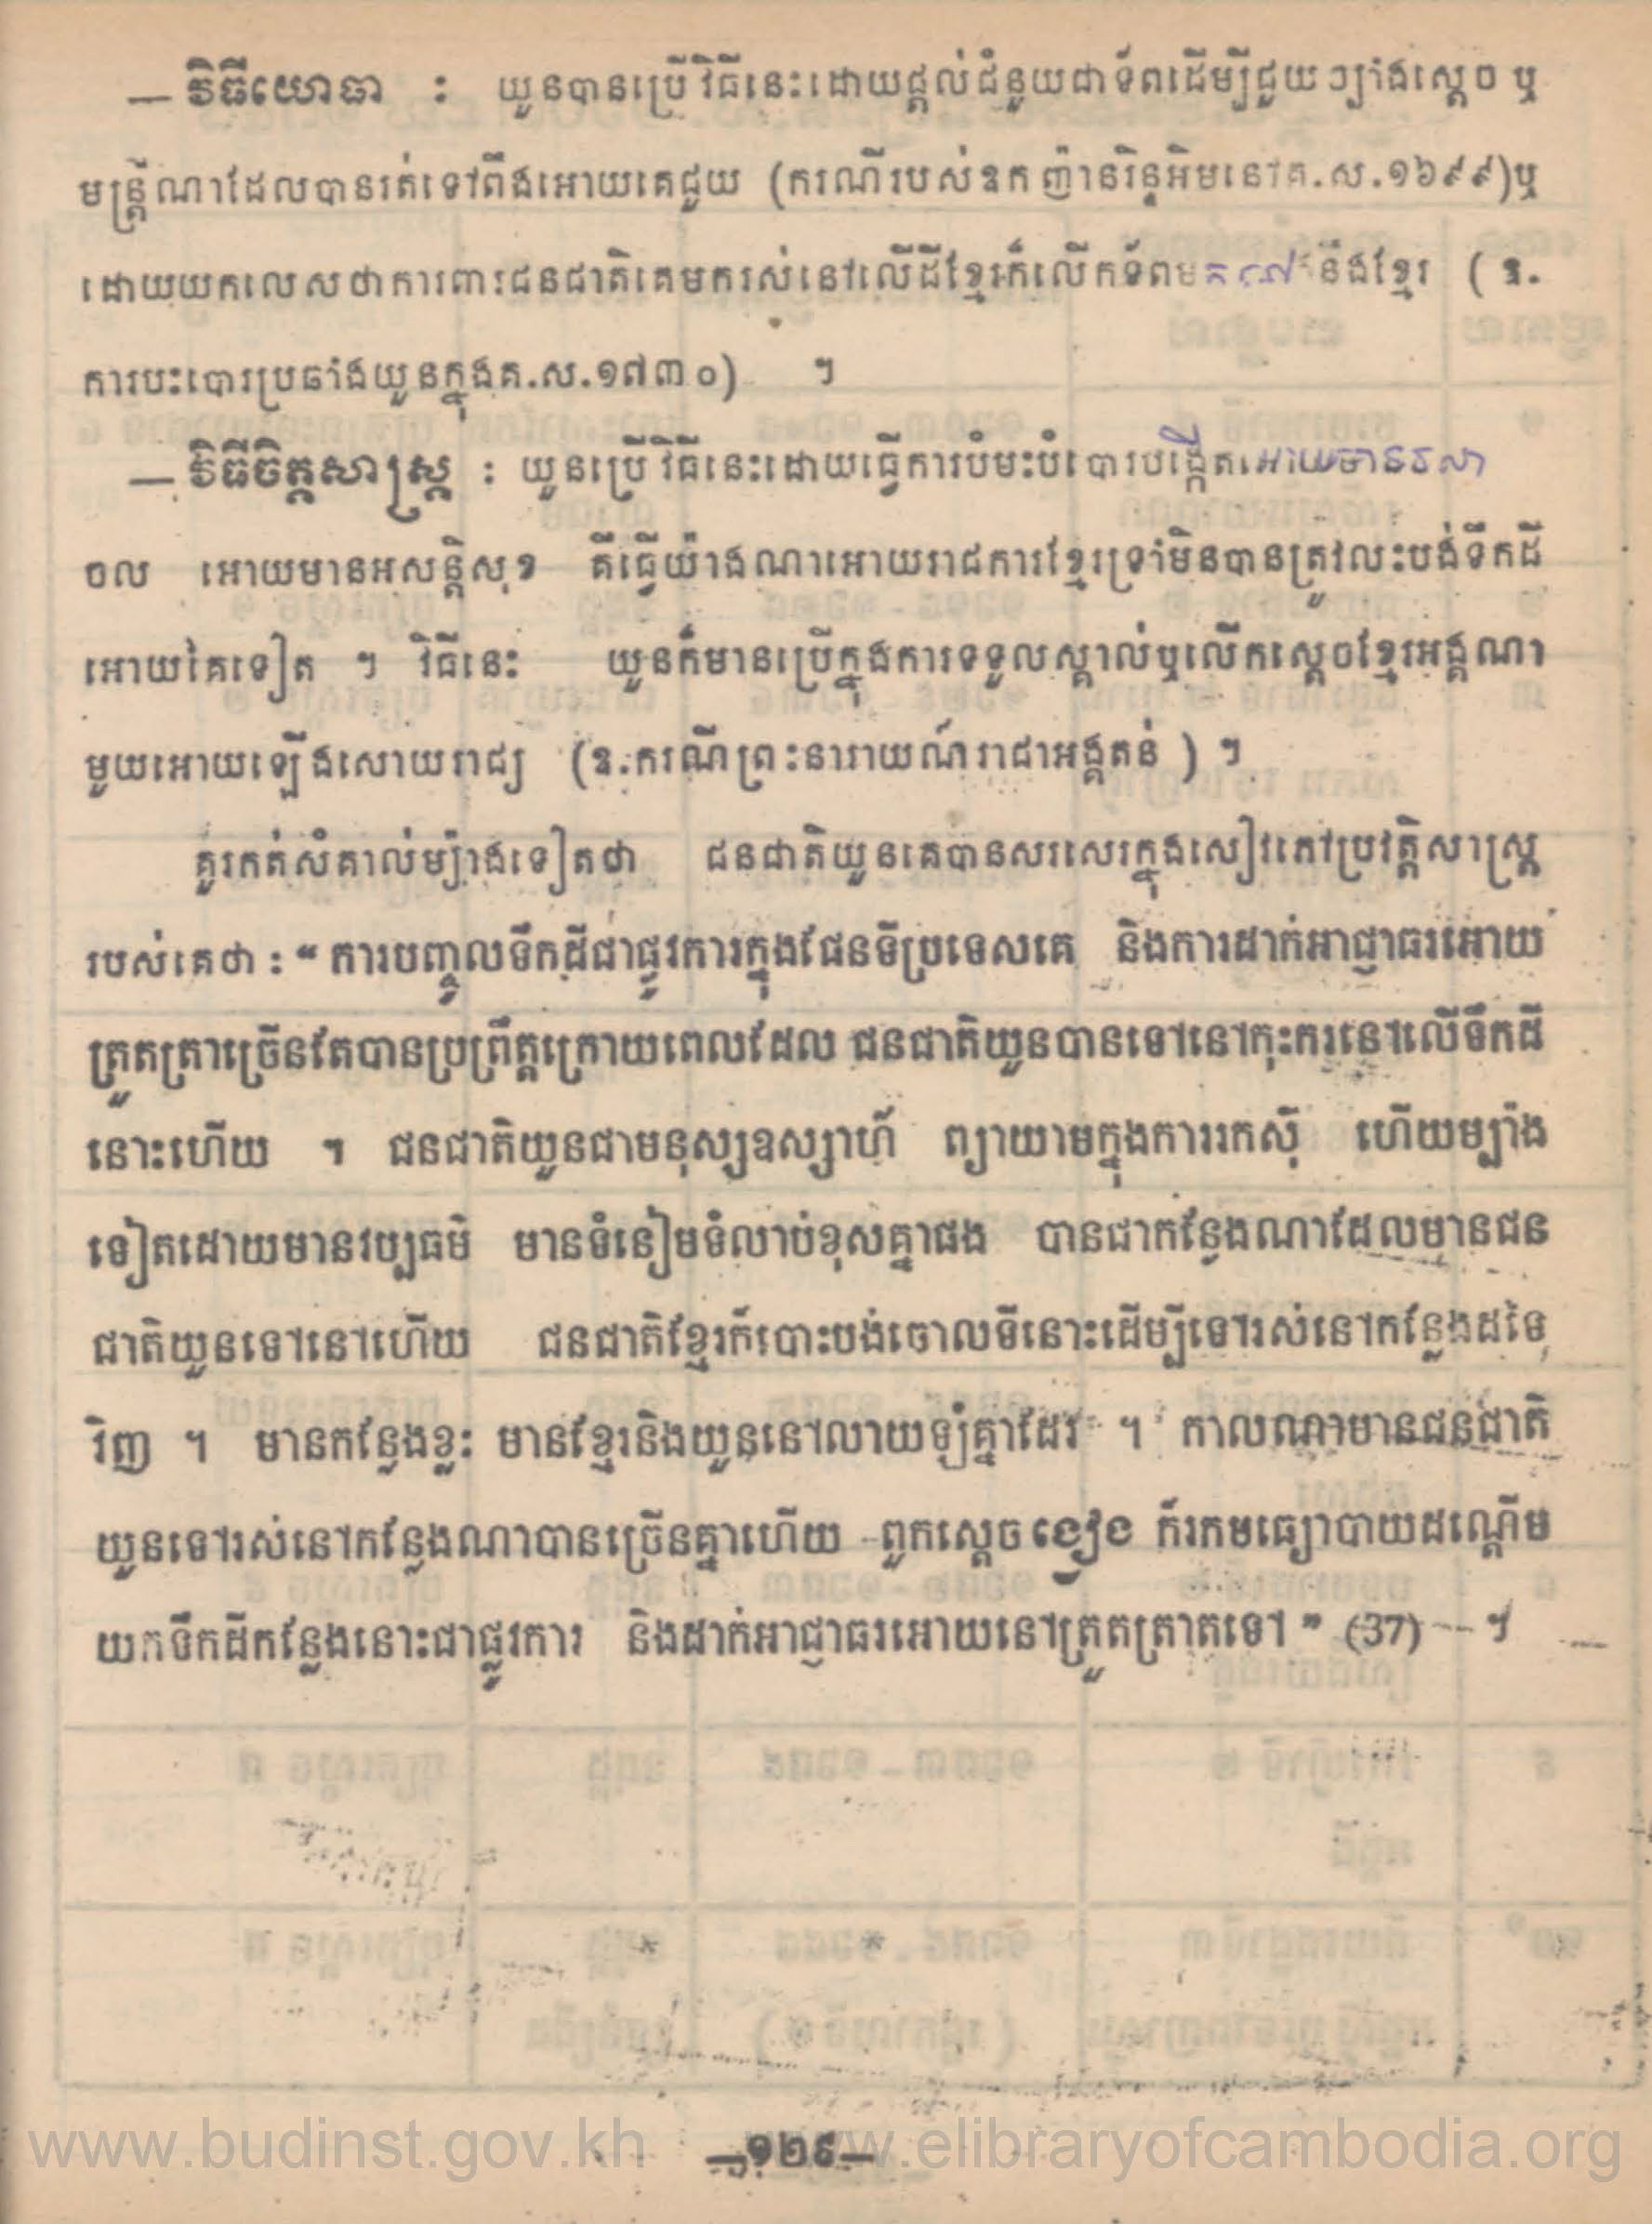 — វិធីយោធា : យួនបានប្រើវិធីនេះដោយផ្តល់ជំនួយជាទ័ពដើម្បីជួយ ស្តេច ឬ
មន្ត្រីណាដែលបានរត់ទៅពឹងអោយគេជួយ (ករណីរបស់ឧកញ៉ានរិន្ទអិមនៅគ.ស.១៦៩៩)ឬ
ដោយយកលេសថាការពារជនជាតិគេមករស់នៅលើដីខ្មែរក៏លើកទ័ពមក នឹងខ្មែរ ( ឧ.
ការបះបោរប្រឆាំងយួនក្នុងគ.ស.១៧៣០) ។
— វិធីចិត្តសាស្ត្រ : យួនប្រើវិធីនេះដោយធ្វើការបំមះបំបោរបង្កើតអោយមាន
ចល អោយមានអសន្តិសុខ គឺធ្វើយ៉ាងណាអោយរាជការខ្មែរទ្រាំមិនបានត្រូវលះបង់ទឹកដី
អោយគៃទៀត ។ វិធីនេះ យួនក៏មានប្រើក្នុងការទទួលស្គាល់ឬលើកស្តេចខ្មែរអង្គណា
មួយអោយឡើងសោយរាជ្យ (ឧ.ករណីព្រះនារាយណ៍រាជាអង្គតន់ ) ។
គួរកត់សំគាល់ម្យ៉ាងទៀតថា ជនជាតិយួនគេបានសរសេរក្នុងសៀវភៅប្រវត្តិសាស្ត្រ
របស់គេថា : “ ការបញ្ចូលទឹកដីជាផ្លូវការក្នុងផែនទីប្រទេសគេ និងការដាក់អាជ្ញាធរអោយ
ត្រួតត្រាច្រើនតែបានប្រព្រឹត្តក្រោយពេលដែល ជនជាតិយួនបានទៅនៅកុះករនៅលើទឹកដី
នោះហើយ ។ ជនជាតិយួនជាមនុស្សឧស្សាហ៍ ព្យាយាមក្នុងការរកស៊ី ហើយម្យ៉ាង
ទៀតដោយមានវប្បធម៌ មានទំនៀមទំលាប់ខុសគ្នាផង បានជាកន្លែងណាដែលមានជន
ជាតិយួនទៅនៅហើយ ជនជាតិខ្មែរក៏បោះបង់ចោលទីនោះដើម្បីទៅរស់នៅកន្លែងដទៃ
វិញ ។ មានកន្លែងខ្លះ មានខ្មែរនិងយួននៅលាយឡំគ្នាដែរ ។ កាលណាមានជនជាតិ
យួនទៅរស់នៅកន្លែងណាបានច្រើនគ្នាហើយ ពួកស្តេចងៀង ក៏រកមធ្យោបាយដណ្តើម
យកទឹកដីកន្លែងនោះជាផ្លូវការ និងដាក់អាជ្ញាធរអោយនៅត្រួតត្រាតទៅ ” (37) ។
—១២៩—
www.budinst.gov.kh www.elibraryofcambodia.org